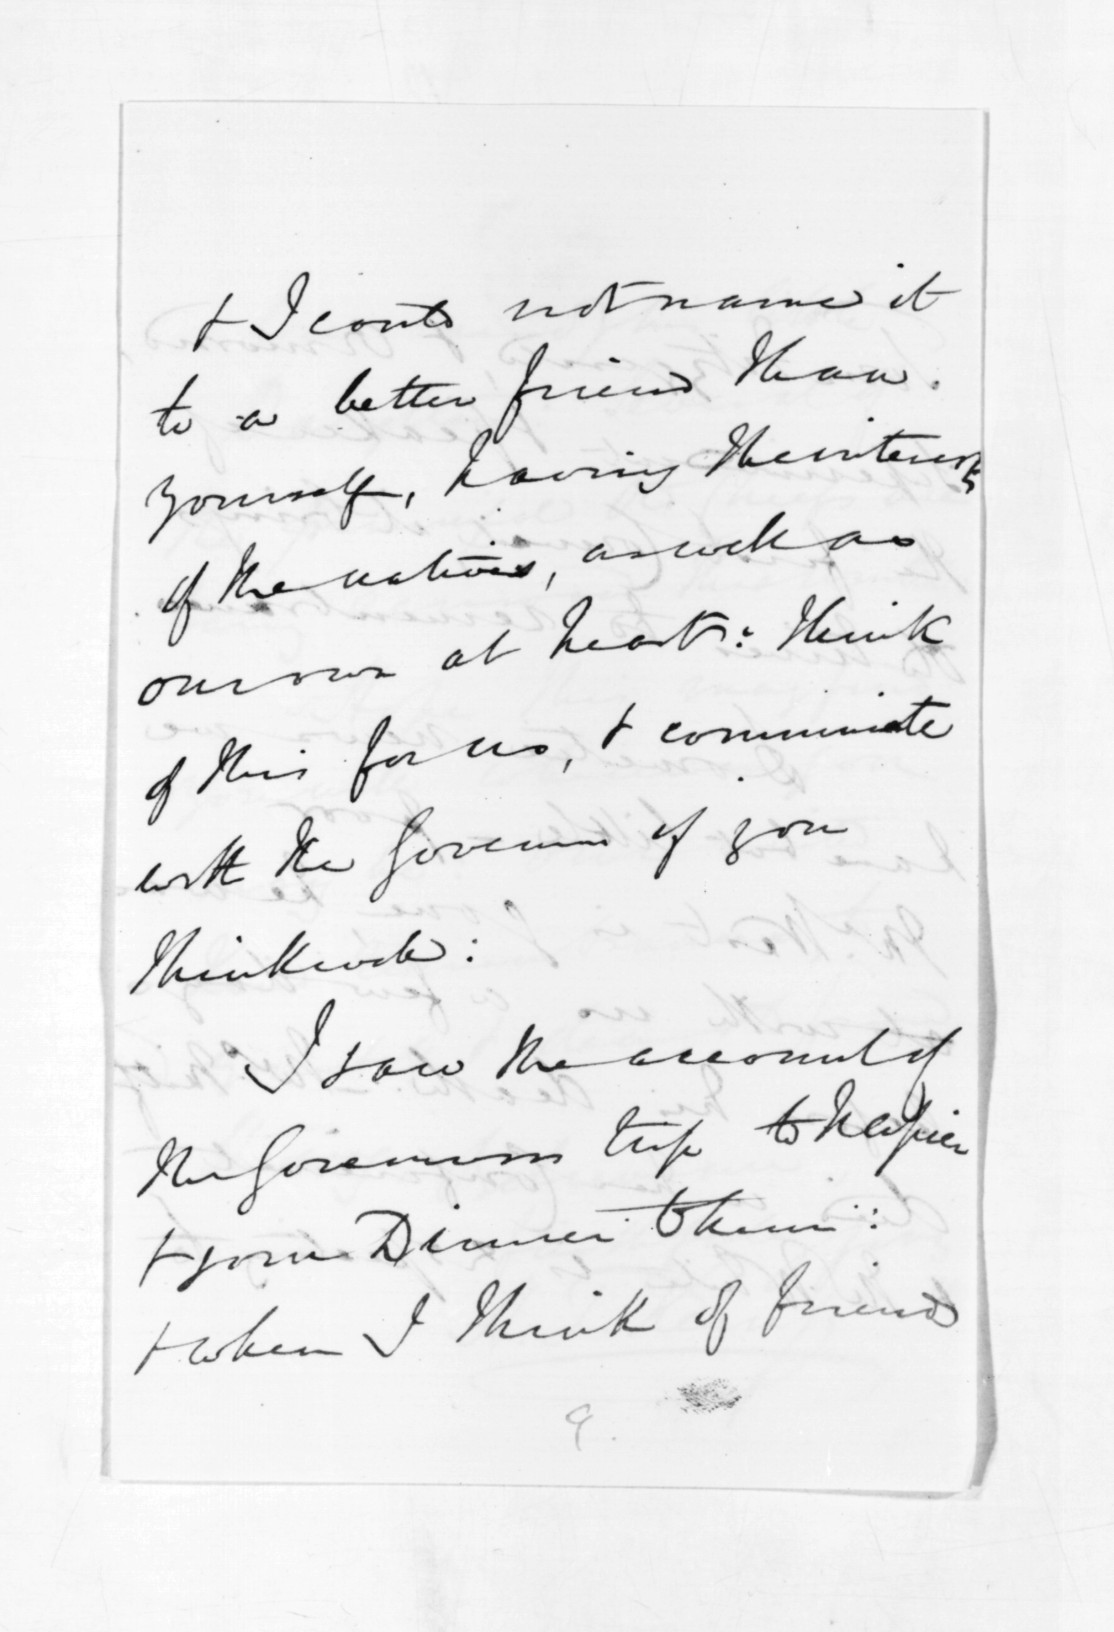 & I could not name it
to a better friend than
yourself, having the interests
of the natives, as well as
our own at heart: think
of this for us, & communicate
with the Governor if you
think well:
I saw the account of
the Governors trip to Napier
& your Dinner to him:
& when I think of friends
9.